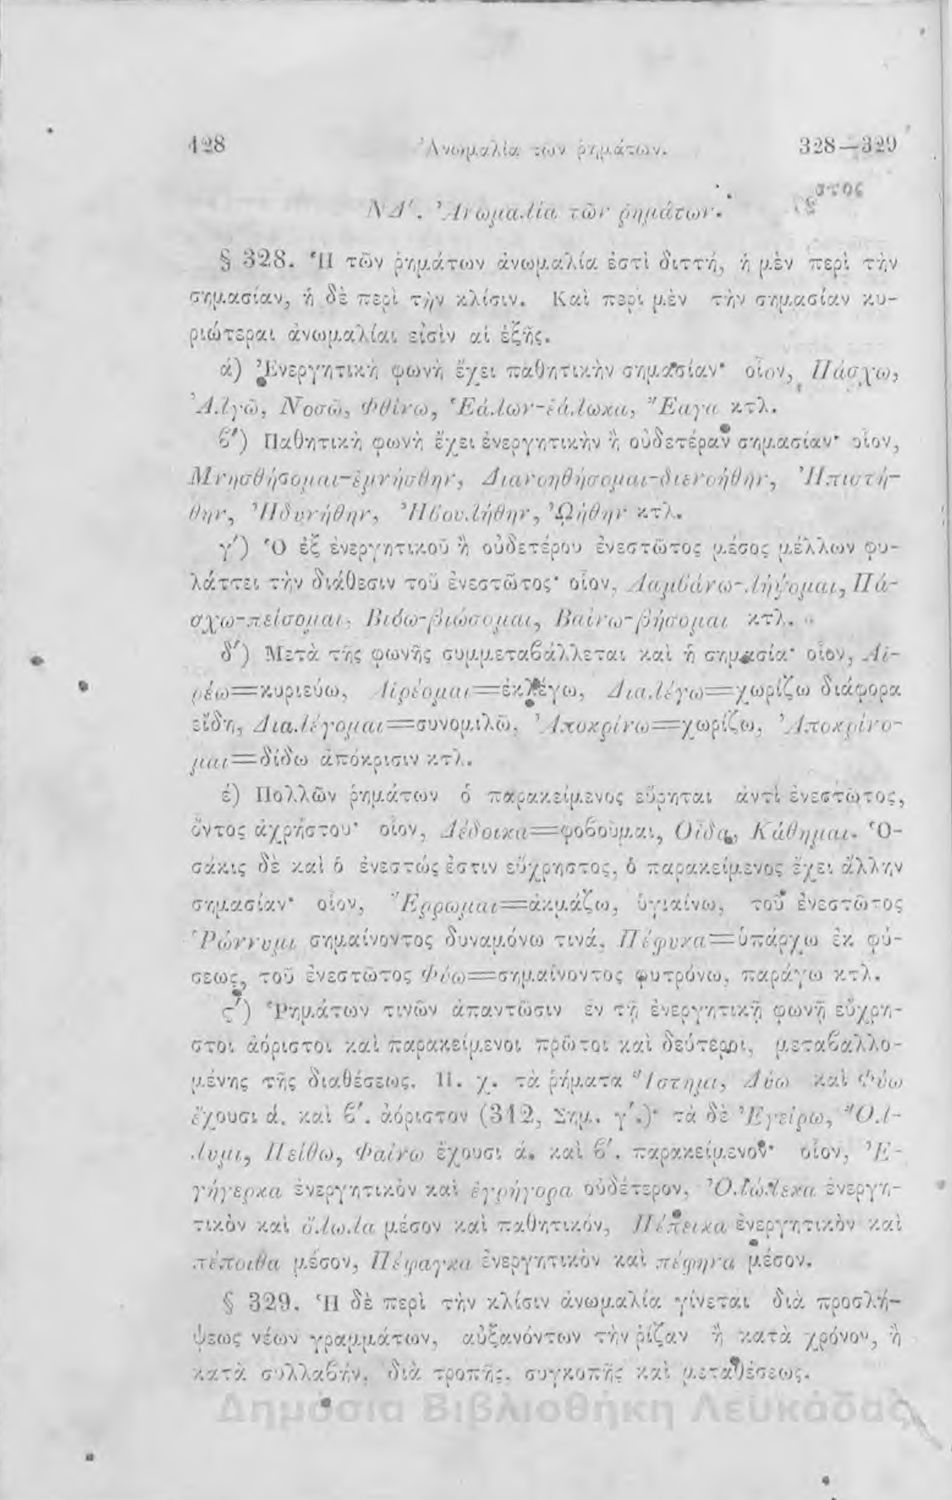 128 Ἀνωμαλία τῶν ῥημάτων. 328—329
ΝΔ΄. Ἀνωμαλία τῶν ῥημάτων.
§ 328. Ἡ τῶν ῥημάτων ἀνωμαλία ἐστὶ διττή, ἡ μὲν περὶ τὴν
σημασίαν, ἡ δὲ περὶ τὴν κλίσιν. Καὶ περὶ μὲν τὴν σημασίαν κυ-
ριώτεραι ἀνωμαλίαι εἰσὶν αἱ ἑξῆς.
ά) Ἐνεργητικὴ φωνὴ ἔχει παθητικὴν σημασίαν· οἷον, Πάσχω,
Ἀλγῶ, Νοσῶ, Φθίνω, Ἑάλων-ἑάλωκα, Ἔαγα κτλ.
β΄) Παθητικὴ φωνὴ ἔχει ἐνεργητικὴν ἢ οὐδετέραν σημασίαν· οἷον,
Μνησθήσομαι-ἐμνήσθην, Διανοηθήσομαι-διενοήθην, Ἠπιστή-
θην, Ἠδυνήθην, Ἠβουλήθην, Ὠήθην κτλ.
γ΄) Ὁ ἐξ ἐνεργητικοῦ ἢ οὐδετέρου ἐνεστῶτος μέσος μέλλων φυ-
λάττει τὴν διάθεσιν τοῦ ἐνεστῶτος· οἷον, Λαμβάνω-λήψομαι, Πά-
σχω-πείσομαι, Βιόω-βιώσομαι, Βαίνω-βήσομαι κτλ.
δ΄) Μετὰ τῆς φωνῆς συμμεταβάλλεται καὶ ἡ σημασία· οἷον, Αἱ-
ρέω=κυριεύω, Αἱρέομαι=ἐκλέγω, Διαλέγω=χωρίζω διάφορα
εἴδη, Διαλέγομαι=συνομιλῶ, Ἀποκρίνω=χωρίζω, Ἀποκρίνο-
μαι=δίδω ἀπόκρισιν κτλ.
έ) Πολλῶν ῥημάτων ὁ παρακείμενος εὕρηται ἀντὶ ἐνεστῶτος,
ὄντος ἀχρήστου· οἷον, Δέδοικα=φοβοῦμαι, Οἶδα, Κάθημαι. Ὁ-
σάκις δὲ καὶ ὁ ἐνεστώς ἐστιν εὔχρηστος, ὁ παρακείμενος ἔχει ἄλλην
σημασίαν· οἷον, Ἔρρωμαι=ἀκμάζω, ὑγιαίνω, τοῦ ἐνεστῶτος
Ῥώννυμι σημαίνοντος δυναμόνω τινά, Πέφυκα=ὑπάρχω ἐκ φύ-
σεως, τοῦ ἐνεστῶτος Φύω=σημαίνοντος φυτρόνω, παράγω κτλ.
ς΄) Ῥημάτων τινῶν ἀπαντῶσιν ἐν τῇ ἐνεργητικῇ φωνῇ εὔχρη-
στοι ἀόριστοι καὶ παρακείμενοι πρῶτοι καὶ δεύτεροι, μεταβαλλο-
μένης τῆς διαθέσεως. Π. χ. τὰ ῥήματα Ἵστημι, Δύω καὶ Φύω
ἔχουσι ά. καὶ β΄. ἀόριστον (312, Σημ. γ΄.)· τὰ δὲ Ἐγείρω, Ὄλ-
λυμι, Πείθω, Φαίνω ἔχουσι ά. καὶ β΄. παρακείμενον· οἷον, Ἐ-
γήγερκα ἐνεργητικὸν καὶ ἐγρήγορα οὐδέτερον, Ὀλώλεκα ἐνεργη-
τικὸν καὶ ὄλωλα μέσον καὶ παθητικόν, Πέπεικα ἐνεργητικὸν καὶ
πέποιθα μέσον, Πέφαγκα ἐνεργητικὸν καὶ πέφηνα μέσον.
§ 329. Ἡ δὲ περὶ τὴν κλίσιν ἀνωμαλία γίνεται διὰ προσλή-
ψεως νέων γραμμάτων, αὐξανόντων τὴν ῥίζαν ἢ κατὰ χρόνον, ἢ
κατὰ συλλαβήν, διὰ τροπῆς, συγκοπῆς καὶ μεταθέσεως.
Δημόσια Βιβλιοθήκη Λευκάδας